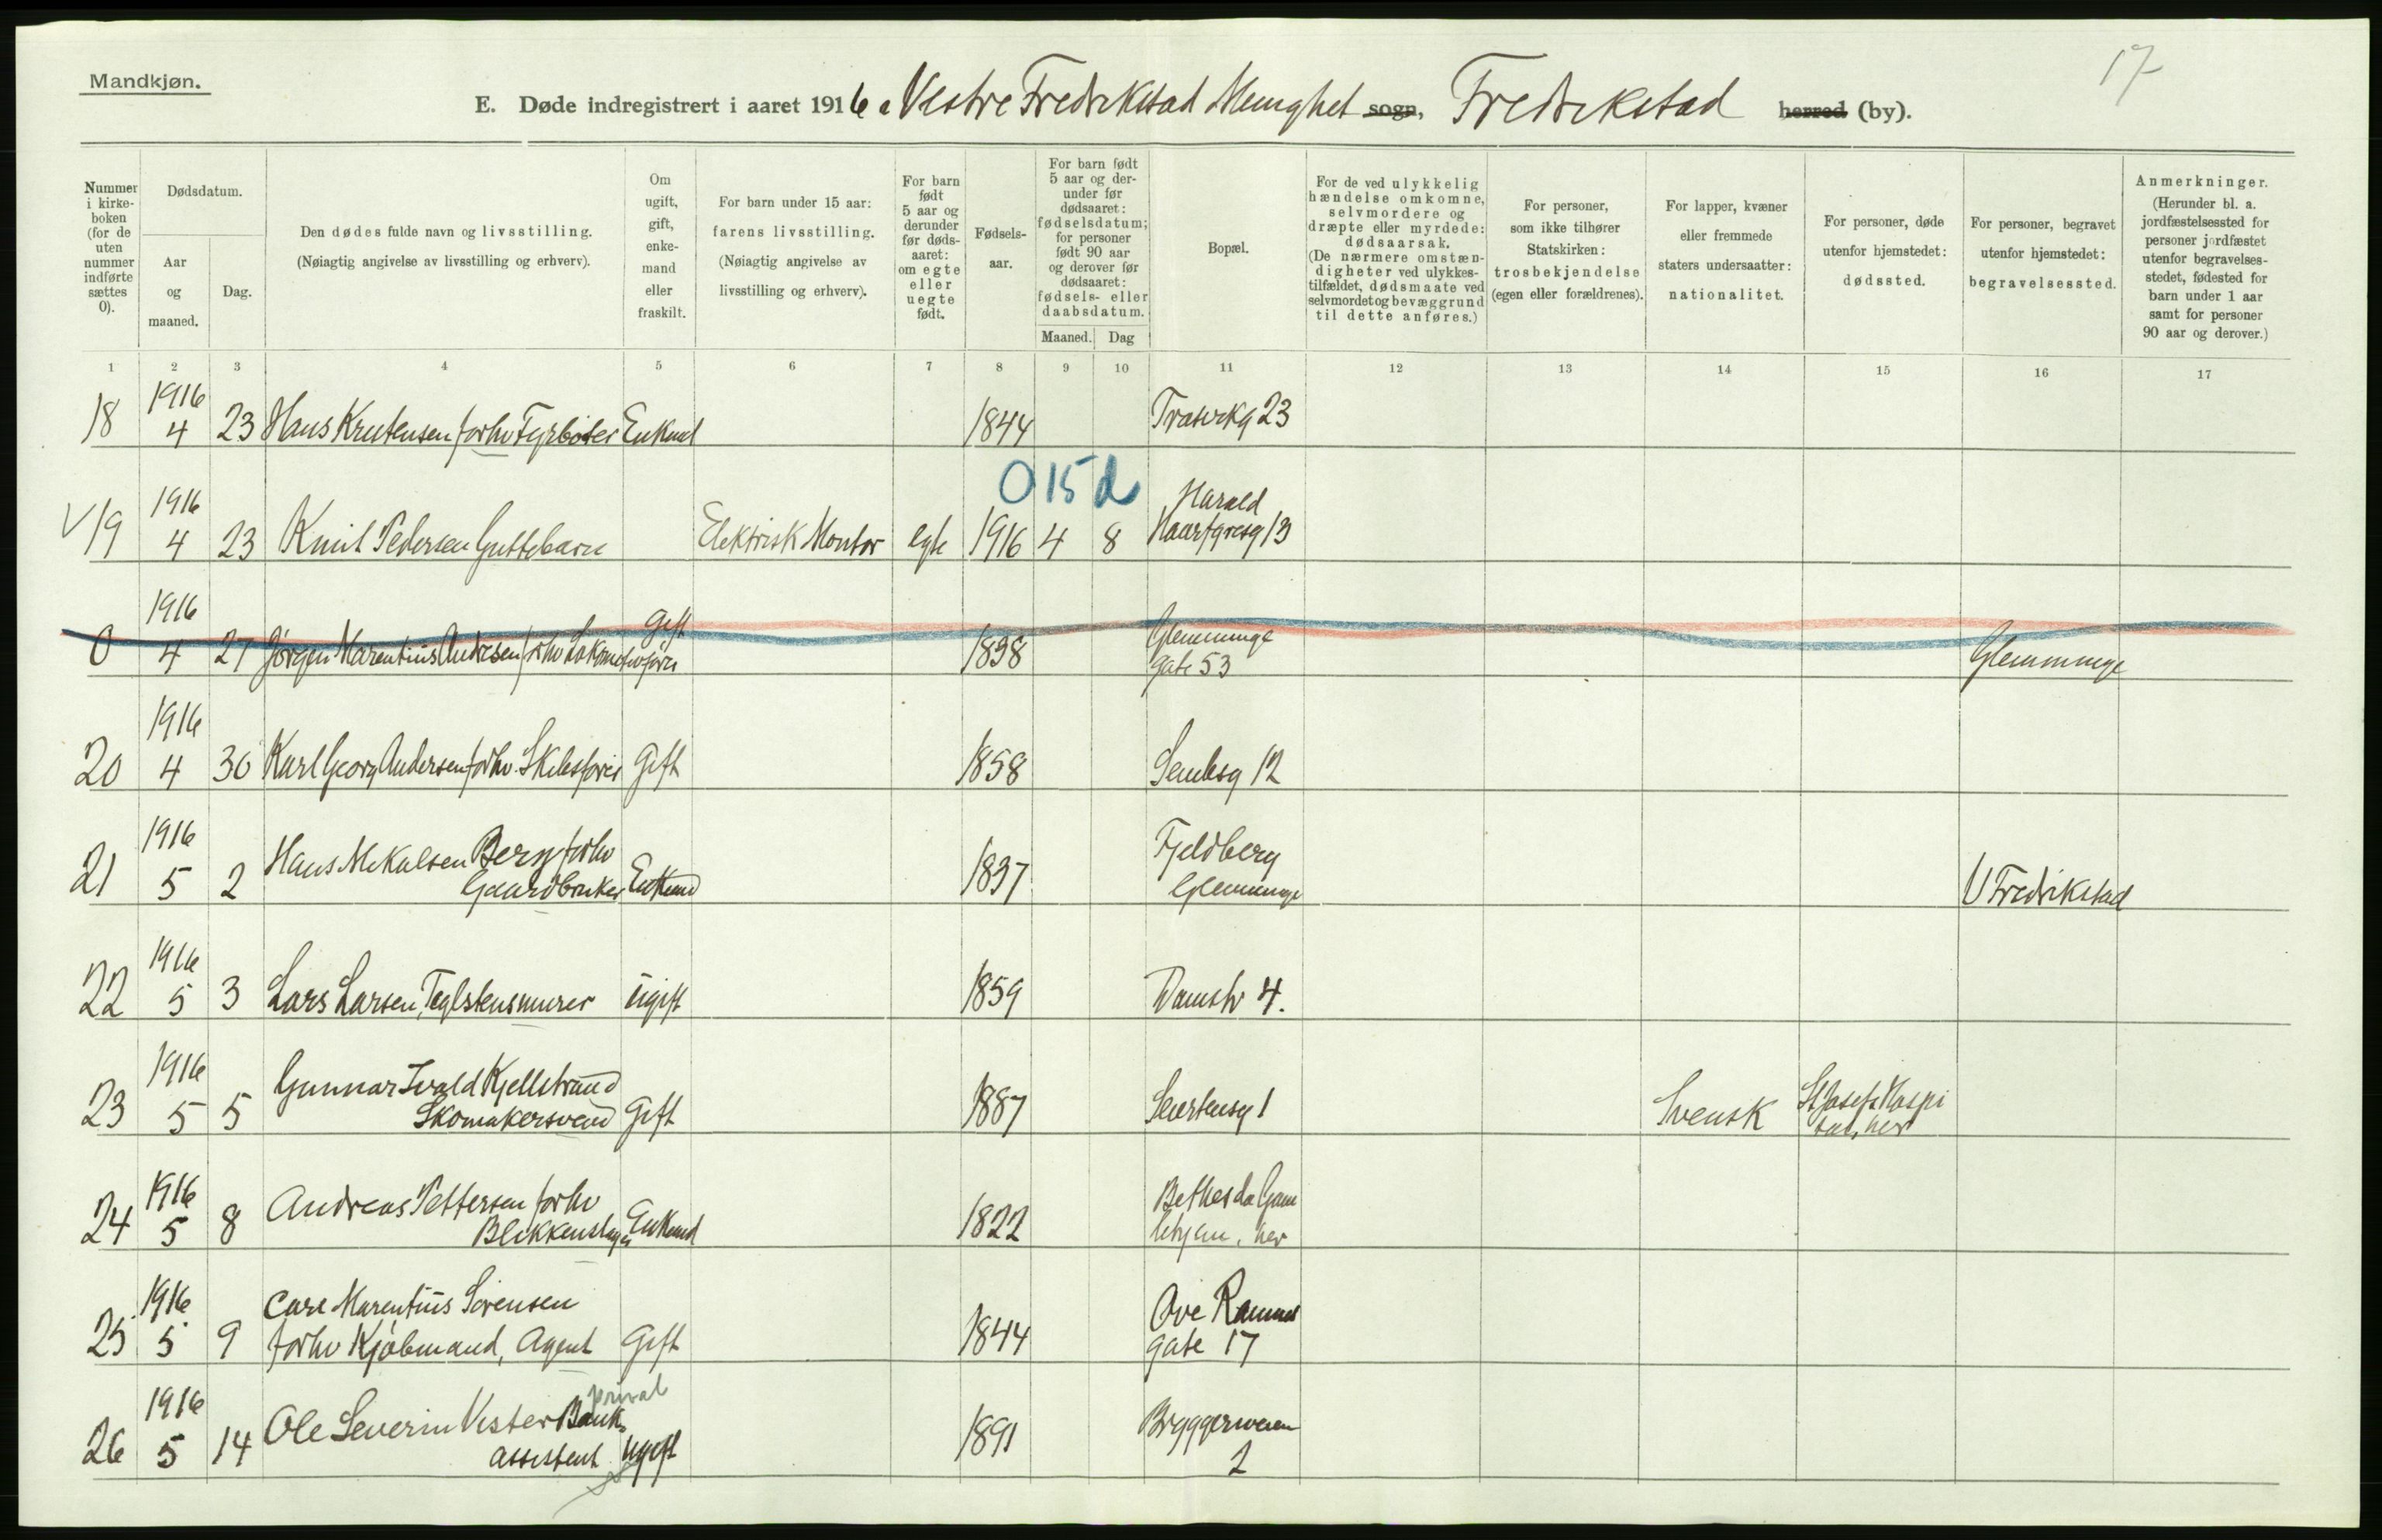 Mandkjøn.
17
E. Døde indregistrert i aaret 1916 i Vestre Fredrikstad Menighet sogn, Fredrikstad herred (by).
Nummer i kirke-boken (for de uten nummer indførte sættes 0).
Dødsdatum.
Aar og maaned.
Dag.
Den dødes fulde navn og livsstilling.
(Nøiagtig angivelse av livsstilling og erhverv).
Om ugift, gift, enke-mand eller fraskilt.
For barn under 15 aar: farens livsstilling.
(Nøiagtig angivelse av livsstilling og erhverv).
For barn født 5 aar og derunder før døds-aaret: om egte eller uegte født.
Fødsels-aar.
For barn født 5 aar og der-under før dødsaaret: fødselsdatum; for personer født 90 aar og derover før dødsaaret: fødsels- eller daabsdatum.
Maaned. Dag
Bopæl.
For de ved ulykkelig hændelse omkomne, selvmordere og dræpte eller myrdede: dødsaarsak.
(De nærmere omstæn-digheter ved ulykkes-tilfældet, dødsmaate ved selvmordet og bevæggrund til dette anføres.)
For personer, som ikke tilhører Statskirken: trosbekjendelse (egen eller forældrenes).
For lapper, kvæner eller fremmede staters undersaatter: nationalitet.
For personer, døde utenfor hjemstedet: dødssted.
For personer, begravet utenfor hjemstedet: begravelsessted.
Anmerkninger.
(Herunder bl. a. jordfæstelsessted for personer jordfæstet utenfor begravelses-stedet, fødested for barn under 1 aar samt for personer 90 aar og derover.)
1 2 3 4 5 6 7 8 9 10 11 12 13 14 15 16 17
18 1916 4 23 Hans Kristensen forhv Fyrbøter Enkmd 1844 23
0 15 d
19 1916 4 23 Knut Pedersen Guttebarn Elektrisk Montør egte 1916 4 8 Harald Haarfgresg 13
0 1916 4 27 Jørgen Marentius Andresen forhv Lokomotivfører Gift 1838 Glemminge gate 53 Glemminge
20 1916 4 30 Karl Georg Andersen forhv. Skibsfører Gift 1858 12
21 1916 5 2 Hans Mikalsen Berg forhv Gaardbruker Enkemd 1837 Fjeldberg Glemminge V Fredrikstad
22 1916 5 3 Lars Larsen, Teglstensmurer ugift 1859 Damstr 4.
23 1916 5 5 Gunnar Ivald Kjellstrand Skomakersvend Gift 1887 1 Svensk St Josefs Hospi tal, her
24 1916 5 8 Andreas Pettersen forhv Blikkenslager Enkemd 1822 Bethesda Gam lehjem, her
25 1916 5 9 Carl Marentius Sørensen forhv Kjøbmand, Agent Gift 1844 Ove Rammes gate 17
26 1916 5 14 Ole Severin Vister privat Bank assistent ugift 1891 Bryggerveien 2